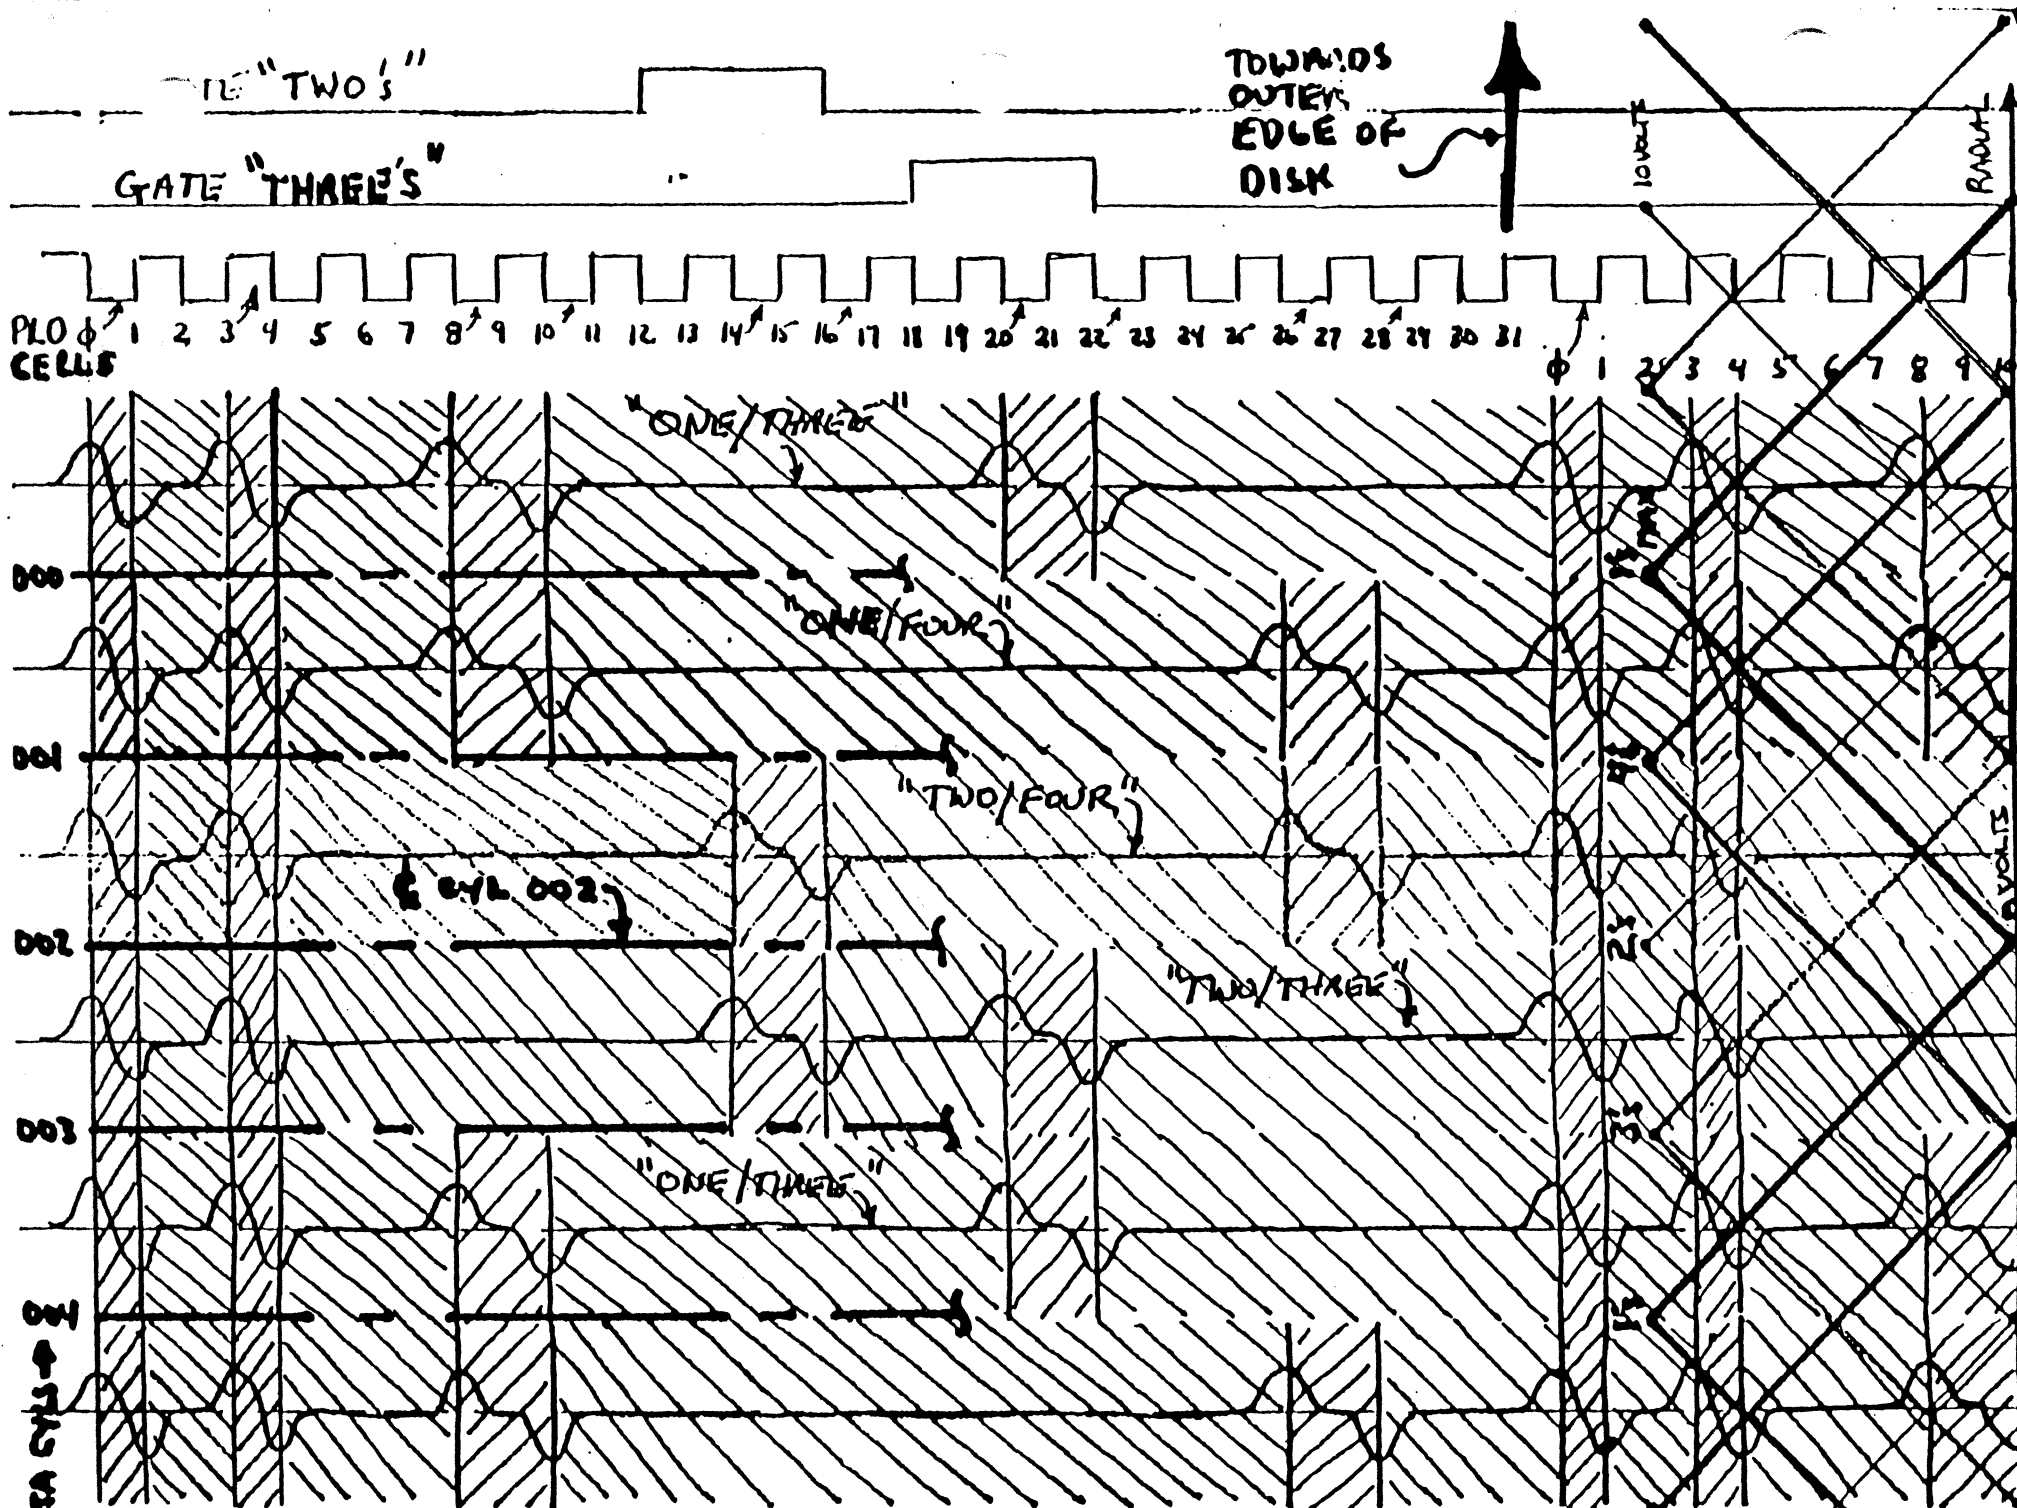 "TWO's"
GATE "THREE'S"
TOWARDS
OUTER
EDGE OF
DISK
10 VOLTS
RADIAL
PLO ϕ 1 2 3 4 5 6 7 8 9 10 11 12 13 14 15 16 17 18 19 20 21 22 23 24 25 26 27 28 29 30 31
CELLS
ϕ 1 2 3 4 5 6 7 8 9 10
"ONE/THREE"
1's MAX
000
"ONE/FOUR"
001
4's
"TWO/FOUR"
0 VOLTS
℄ CYL 002
002
2's
"TWO/THREE"
003
3's
"ONE/THREE"
004
1's
CYLS